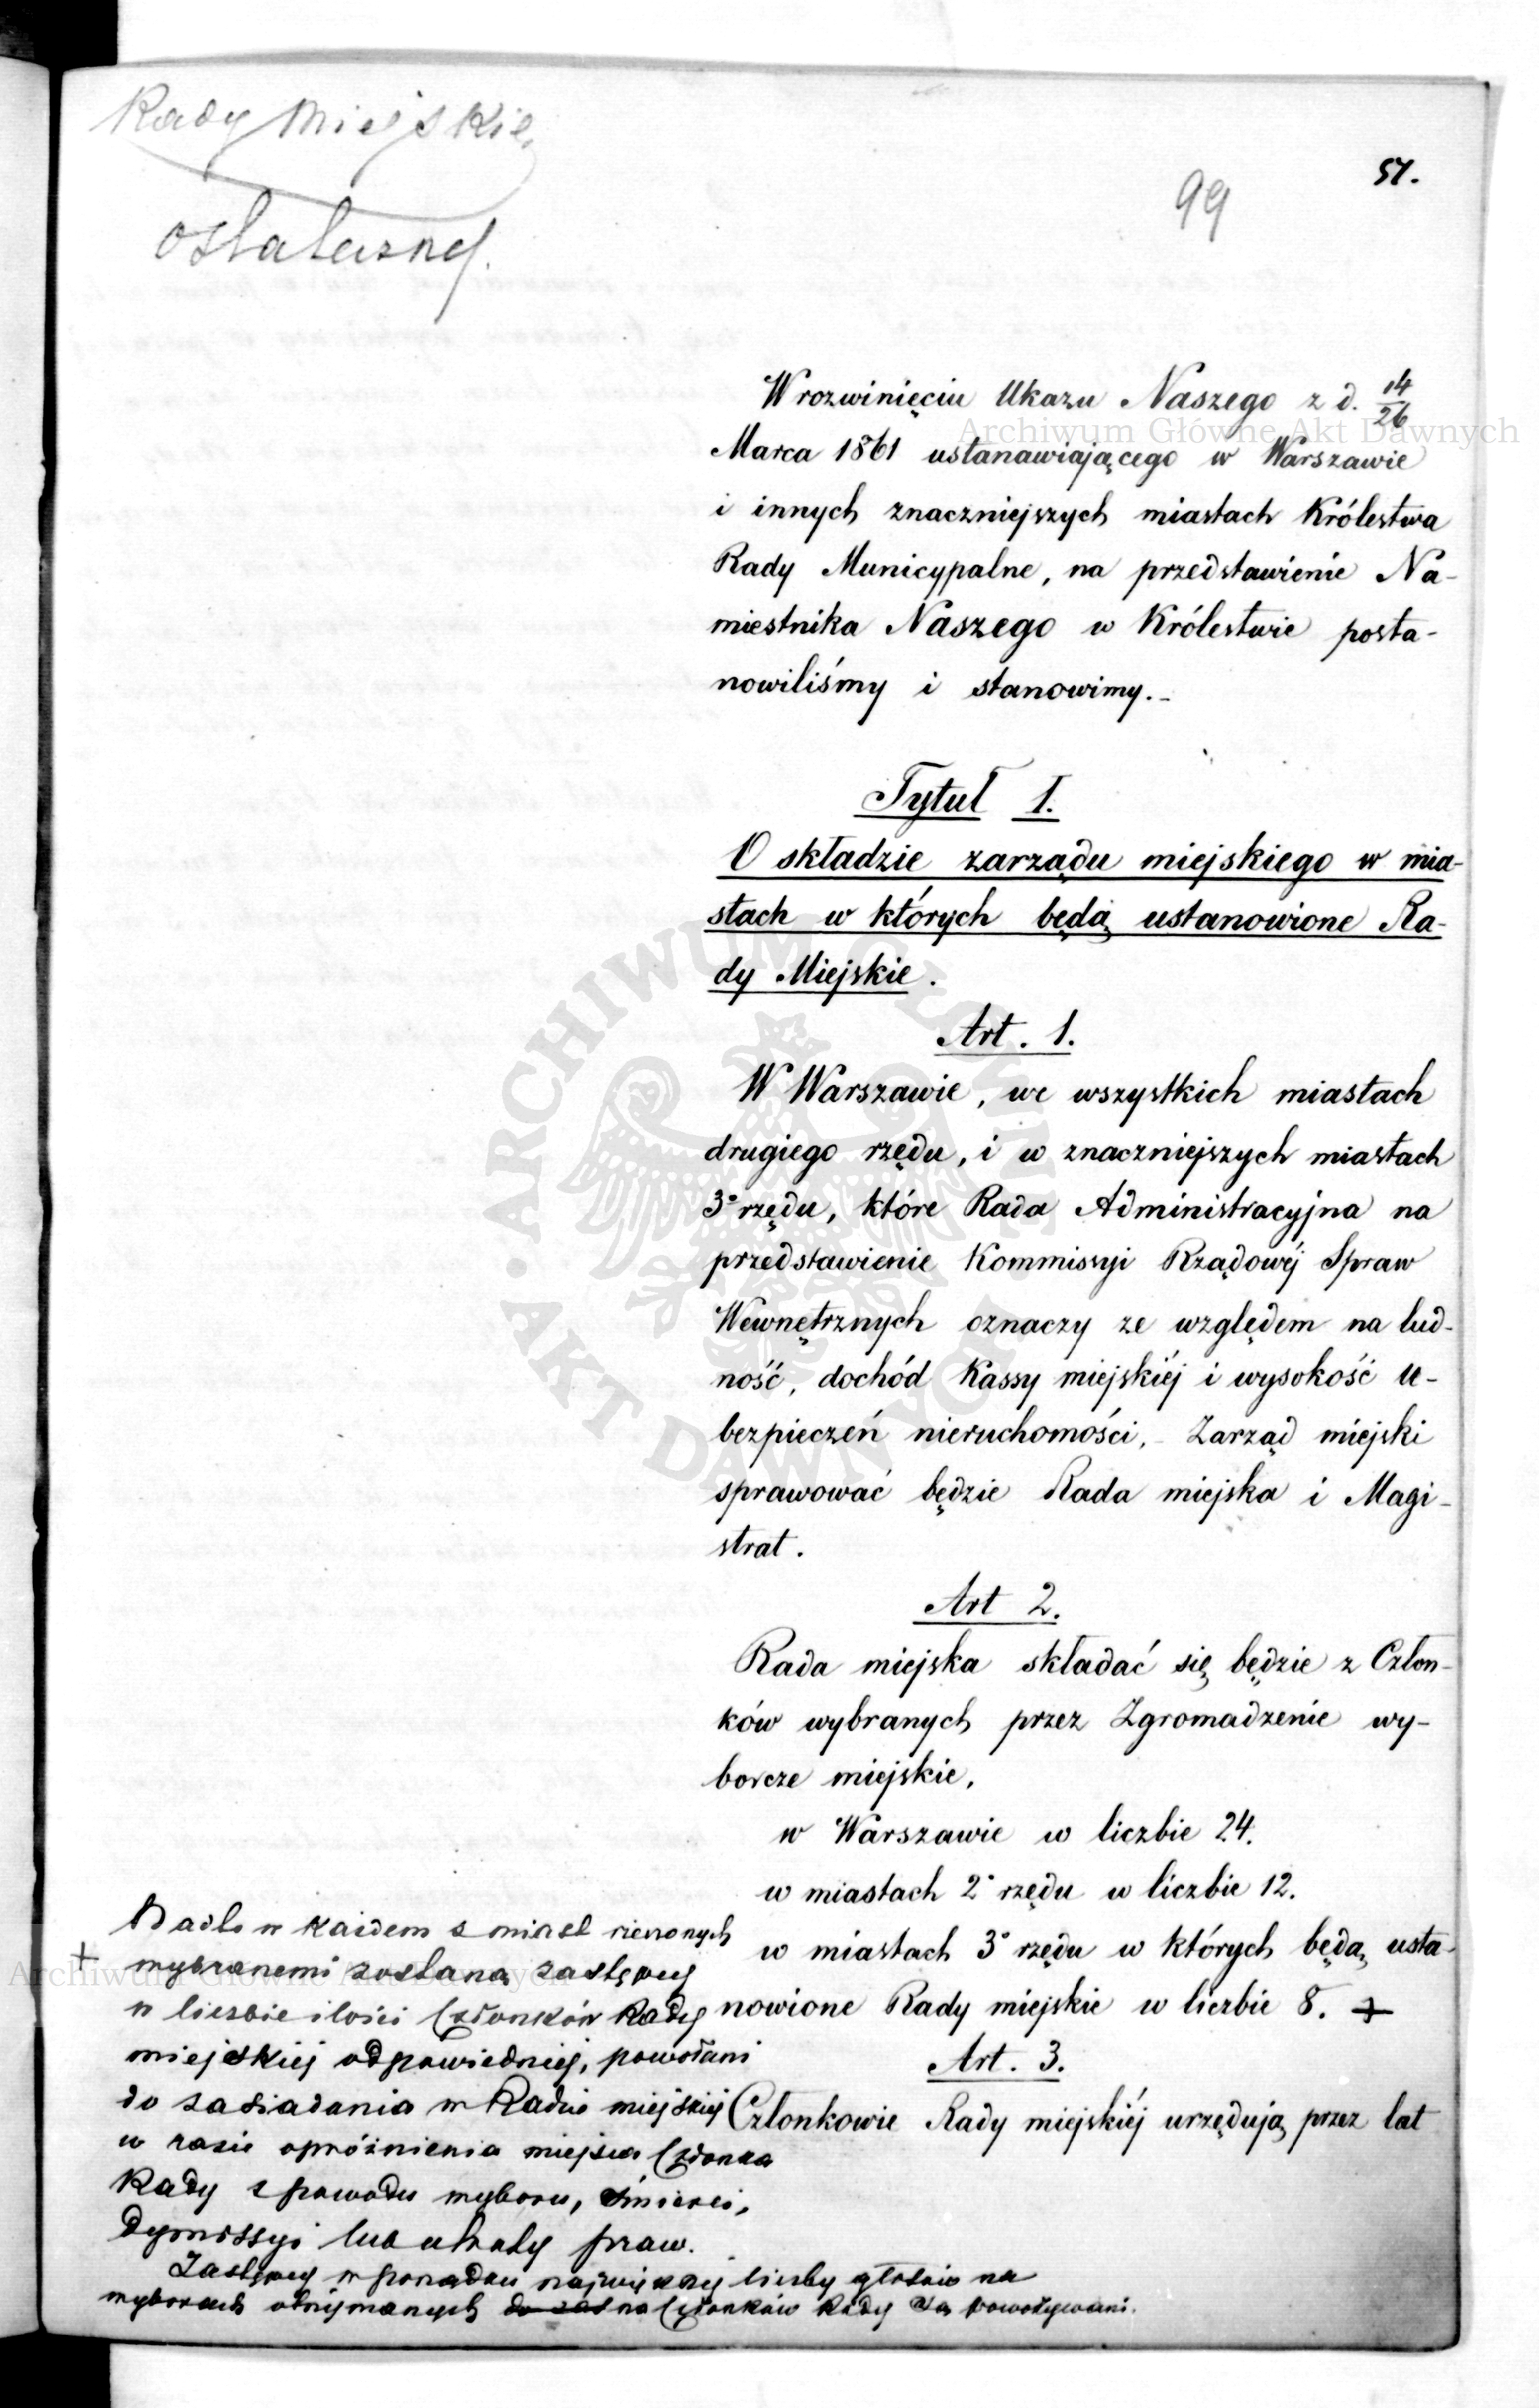 Rady Miejskie
ostatecznej.
99
51.
W rozwinięciu Ukazu Naszego z d. 14/26
Marca 1861 ustanawiającego w Warszawie
i innych znaczniejszych miastach Królestwa
Rady Municypalne, na przedstawienie Na-
miestnika Naszego w Królestwie posta-
nowiliśmy i stanowimy.-
Tytuł I.
O składzie zarządu miejskiego w mia-
stach w których będą ustanowione Ra-
dy Miejskie.
Art. 1.
W Warszawie, we wszystkich miastach
drugiego rzędu, i w znaczniejszych miastach
3° rzędu, które Rada Administracyjna na
przedstawienie Kommissyi Rządowéj Spraw
Wewnętrznych oznaczy ze względem na lud-
ność, dochód Kassy miejskiéj i wysokość u-
bezpieczeń nieruchomości,- Zarząd miejski
sprawować będzie Rada miejska i Magi-
strat.
Art 2.
Rada miejska składać się będzie z Człon-
ków wybranych przez Zgromadzenie wy-
borcze miejskie,
w Warszawie w liczbie 24.
w miastach 2° rzędu w liczbie 12.
w miastach 3° rzędu w których będą usta-
nowione Rady miejskie w liczbie 8. +
Art. 3.
Członkowie Rady miejskiéj urzędują przez lat
w każdem z miast rzeczonych
+ wybranemi zostaną zastępcy
w liczbie ilości Członków Rady
miejskiej odpowiedniej, powołani
do zasiadania w Radzie miejskiej
w razie opróżnienia miejsca Członka
Rady z powodu wyboru, śmierci,
dymissyi lub utraty praw.
Zastępcy w porządku największej liczby głosów na
wyborach otrzymanych do zas na Członków Rady są powoływani.
Archiwum Główne Akt Dawnych
Archiwum Główne Akt Dawnych
ARCHIWUM GŁÓWNE AKT DAWNYCH